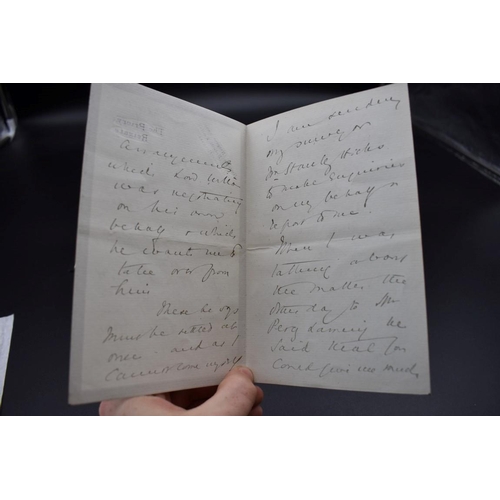 arrangements
which Lord
was negotiating
on his own
behalf & which
he wants me to
take over from
him
These he says
must be settled at
once - and as I
cannot come myself
I am sending
my surveyor
Mr Stanley Hicks
to make enquiries
on my behalf &
report to me.
When I was
talking about
the matter the
other day to Mr
Percy he
said that you
could give me much